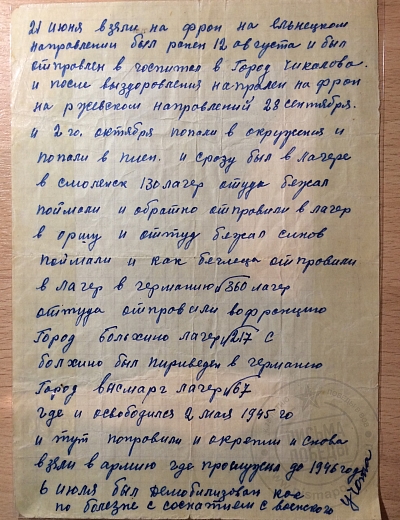 21 июня взяли на фрон на ельнецком
направлении был ранен 12 августа и был
отправлен в госпитол в Город Чикалова.
и после выздоровления направлен на фрон
на ржевском направлений 28 сентября.
и 2го. октября попали в окружения и
попали в плен. и сразу был в лагере
в смоленск 130 лагер отуда бежал
поймали и обратно отправили в лагер
в оршу и оттуд бежал снов
поймали и как беглеца отправили
в лагер в германию №360 лагер
оттуда отправили вофранцию
Город болохино лагер №217 с
болхино был пириведен в германию
Город висмарг лагер №67
где и освободился 2 мая 1945 го
и тут попровили и окрепли и снова
взяли в армию где прослужил до 1946 года
6 июля был демобилизован как
по болезне с соснатием с воского
учота